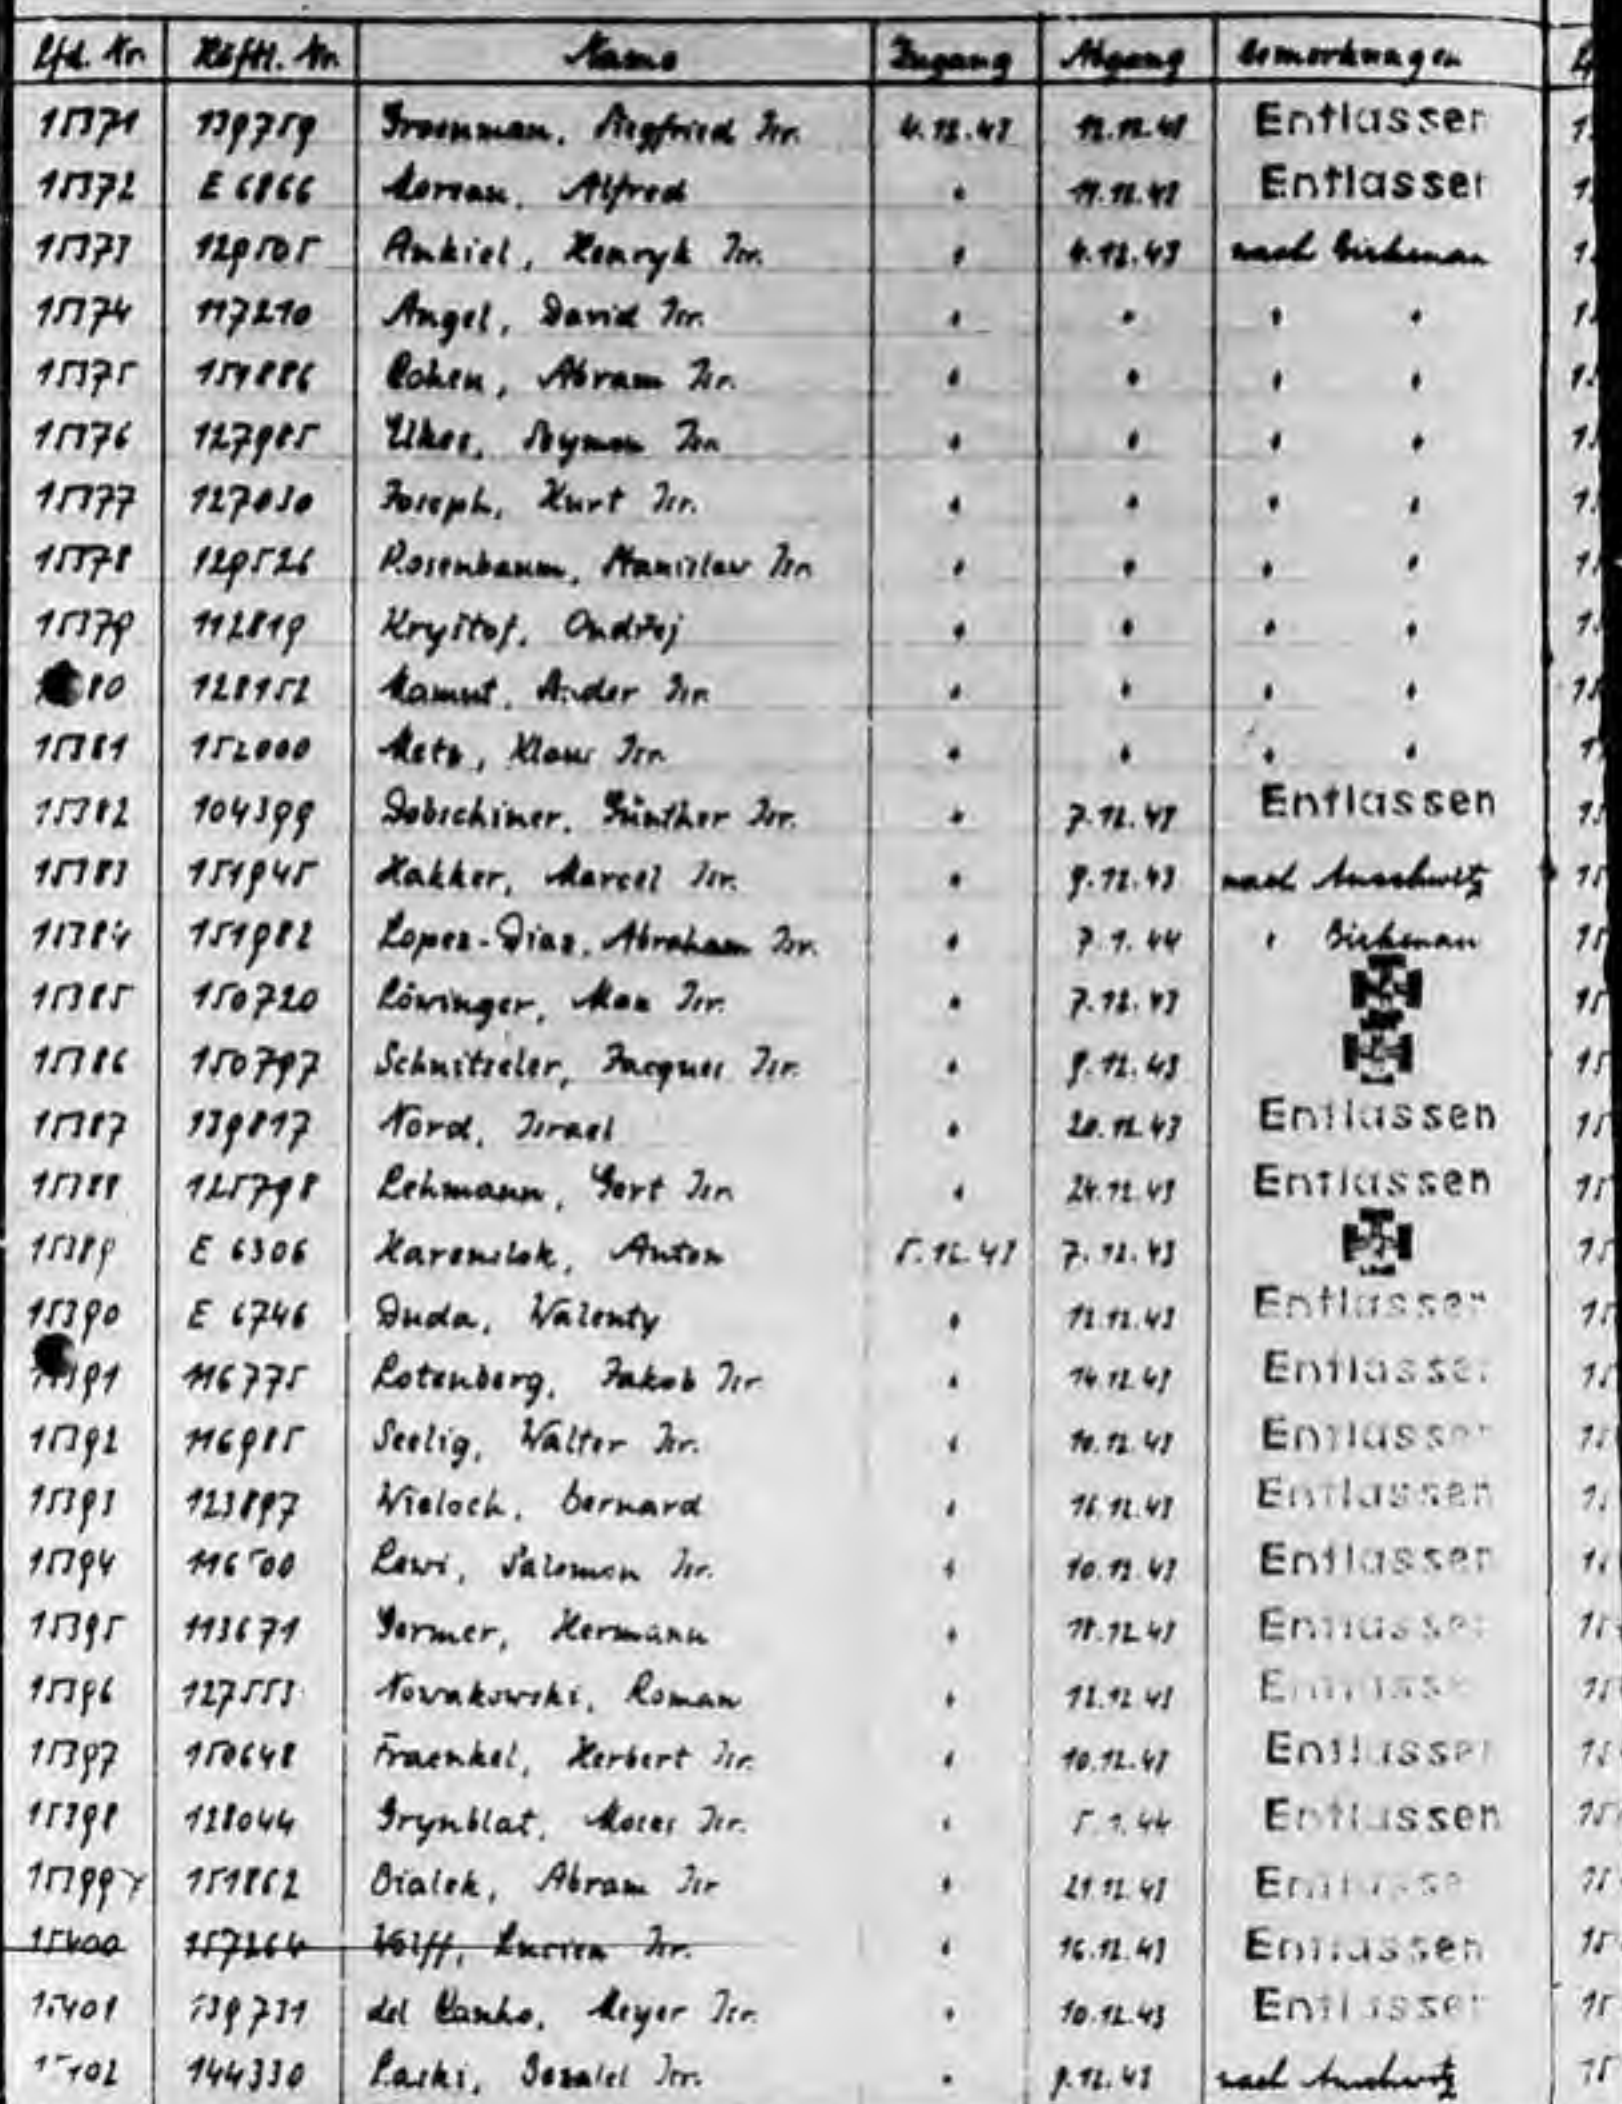 Lfd. Nr. Häftl. Nr. Name Zugang Abgang Bemerkungen
15371 139759 Groenman, Siegfried Isr. 4.12.43 12.12.43 Entlassen
15372 E 6866 Moreau, Alfred " 11.12.43 Entlassen
15373 129505 Ankiel, Henryk Isr. " 4.12.43 nach Birkenau
15374 117210 Angel, David Isr. " " " "
15375 151886 Cohen, Abram Isr. " " " "
15376 127985 Elkes, Szymon Isr. " " " "
15377 127030 Joseph, Kurt Isr. " " " "
15378 129526 Rosenbaum, Stanislaw Isr. " " " "
15379 112819 Kryštof, Ondřej " " " "
80 128152 Mamut, Ander Isr. " " " "
15381 152000 Metz, Klaus Isr. " " " "
15382 104399 Dobschiner, Günther Isr. " 7.12.43 Entlassen
15383 151945 Hakker, Marcel Isr. " 9.12.43 nach Auschwitz
15384 151982 Lopez-Diaz, Abraham Isr. " 7.1.44 " Birkenau
15385 150720 Löwinger, Max Isr. " 7.12.43
15386 150797 Schnitzeler, Jacques Isr. " 9.12.43
15387 139817 Nord, Israel " 20.12.43 Entlassen
15388 125798 Lehmann, Gert Isr. " 24.12.43 Entlassen
15389 E 6306 Anton 5.12.43 7.12.43
15390 E 6746 Duda, Walenty " 12.12.43 Entlassen
15391 116775 Rotenberg, Jakob Isr. " 14.12.43 Entlassen
15392 116985 Seelig, Walter Isr. " 10.12.43 Entlassen
15393 123897 Wieloch, Bernard " 16.12.43 Entlassen
15394 116500 Lewi, Salomon Isr. " 10.12.43 Entlassen
15395 113671 Germer, Hermann " 18.12.43 Entlassen
15396 127553 Nowakowski, Roman " 12.12.43 Entlassen
15397 150648 Fraenkel, Herbert Isr. " 10.12.43 Entlassen
15398 128044 Grynblat, Moses Isr. " 5.1.44 Entlassen
15399 151862 Bialek, Abram Isr " 21.12.43 Entlassen
15400 157264 Wolff, Lucien Isr. " 16.12.43 Entlassen
15401 139731 del Canho, Meyer Isr. " 10.12.43 Entlassen
15402 144330 Laski, Bezalel Isr. " 9.12.43 nach Auschwitz